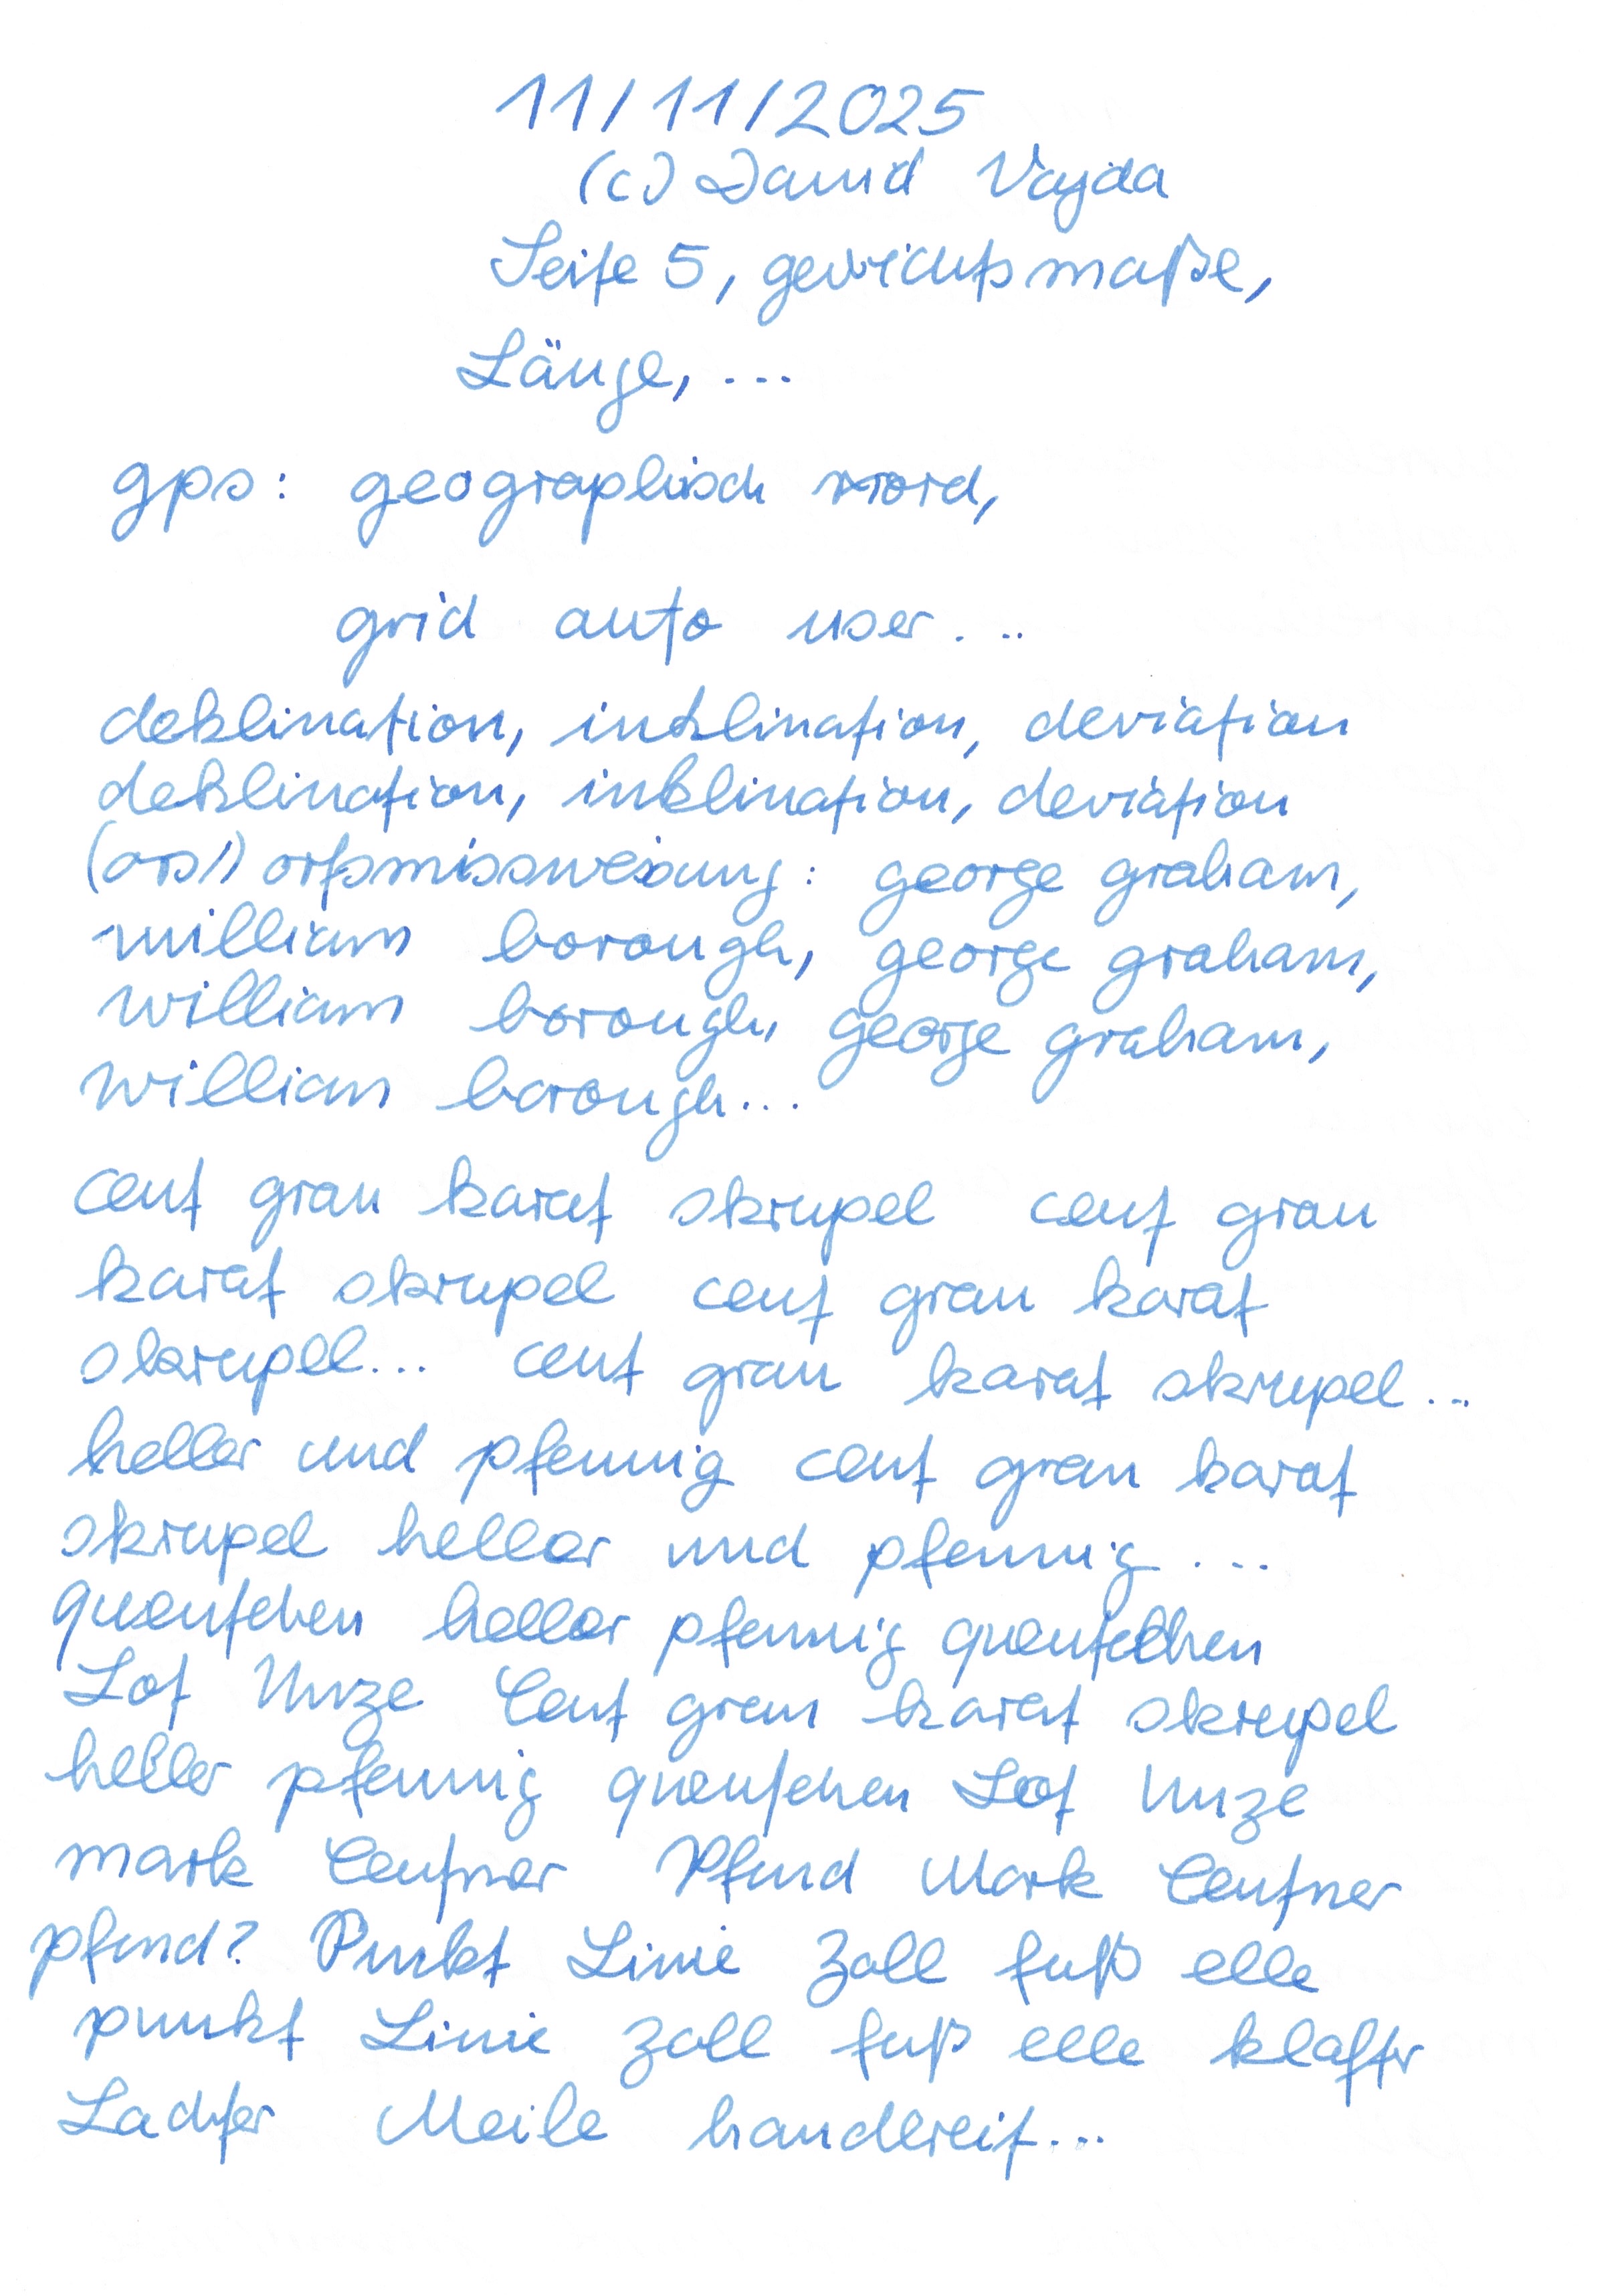 11/11/2025
(c) David Vajda
Seite 5, gewichtsmaße,
Länge, ...
gps: geographisch nord,
grid auto user...
deklination, inklination, deviation
deklination, inklination, deviation
ortsmissweisung: george graham,
william borough, george graham,
william borough, george graham,
william borough...
cent gran karat skrupel cent gran
karat skrupel cent gran karat
skrupel... cent gran karat skrupel...
heller und pfennig cent gran karat
skrupel heller und pfennig...
quentchen heller pfennig quentchen
Lot Unze Cent gran karat skrupel
heller pfennig quentchen Lot Unze
mark Centner Pfund Mark Centner
pfund? Punkt Linie Zoll fuß elle
punkt Linie Zoll fuß elle klafter
Lachter Meile handbreit...